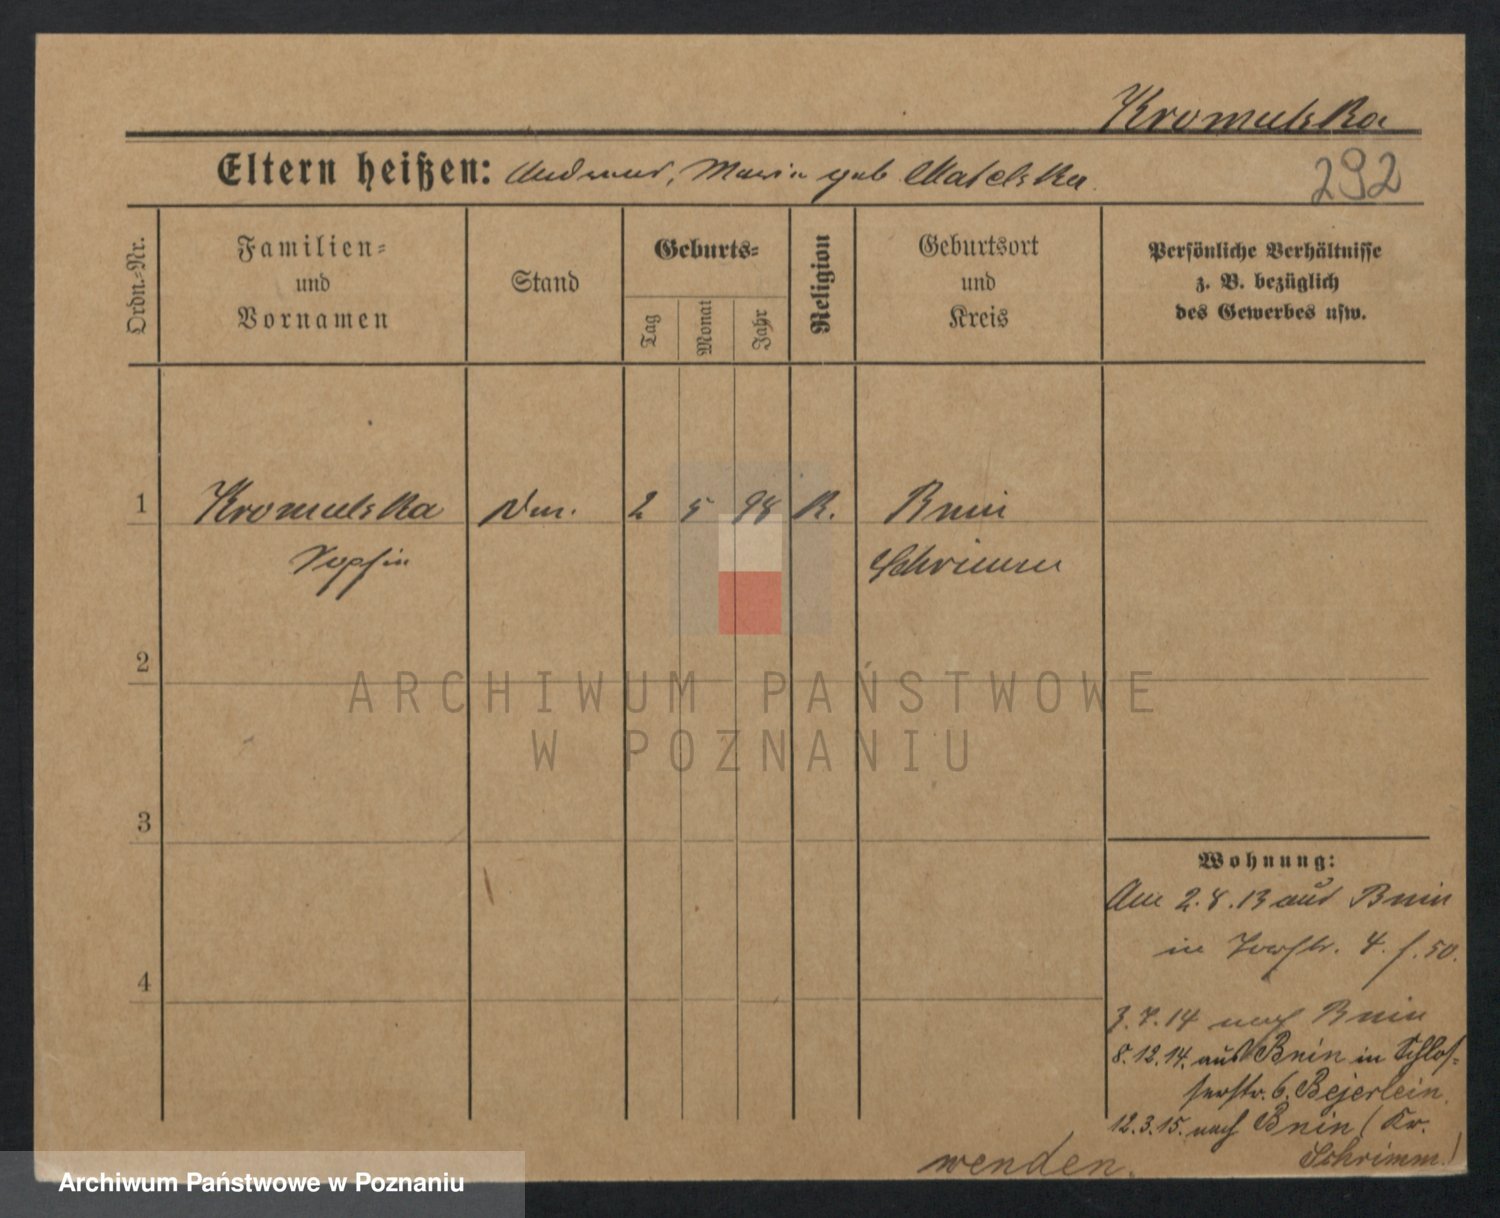 Kromulska
Eltern heißen: Andreas, Maria geb Matelska
292
Ordn.-Nr.
Familien-
und
Vornamen
Stand
Geburts-
Tag
Monat
Jahr
Religion
Geburtsort
und
Kreis
Persönliche Verhältnisse
z. B. bezüglich
des Gewerbes usw.
1
Kromulska
Sophie
2
5
98
K.
Bnin
Schrimm
2
3
4
ARCHIWUM PAŃSTWOWE
W POZNANIU
Wohnung:
Am 2.8.13 aus Bnin
in 4. 50.
3.7.14 nach Bnin
8.12.14. aus Bnin in Schlos-
serstr. 6. Bejerlein.
12.3.15. nach Bnin (Kr.
Schrimm.)
wenden.
Archiwum Państwowe w Poznaniu